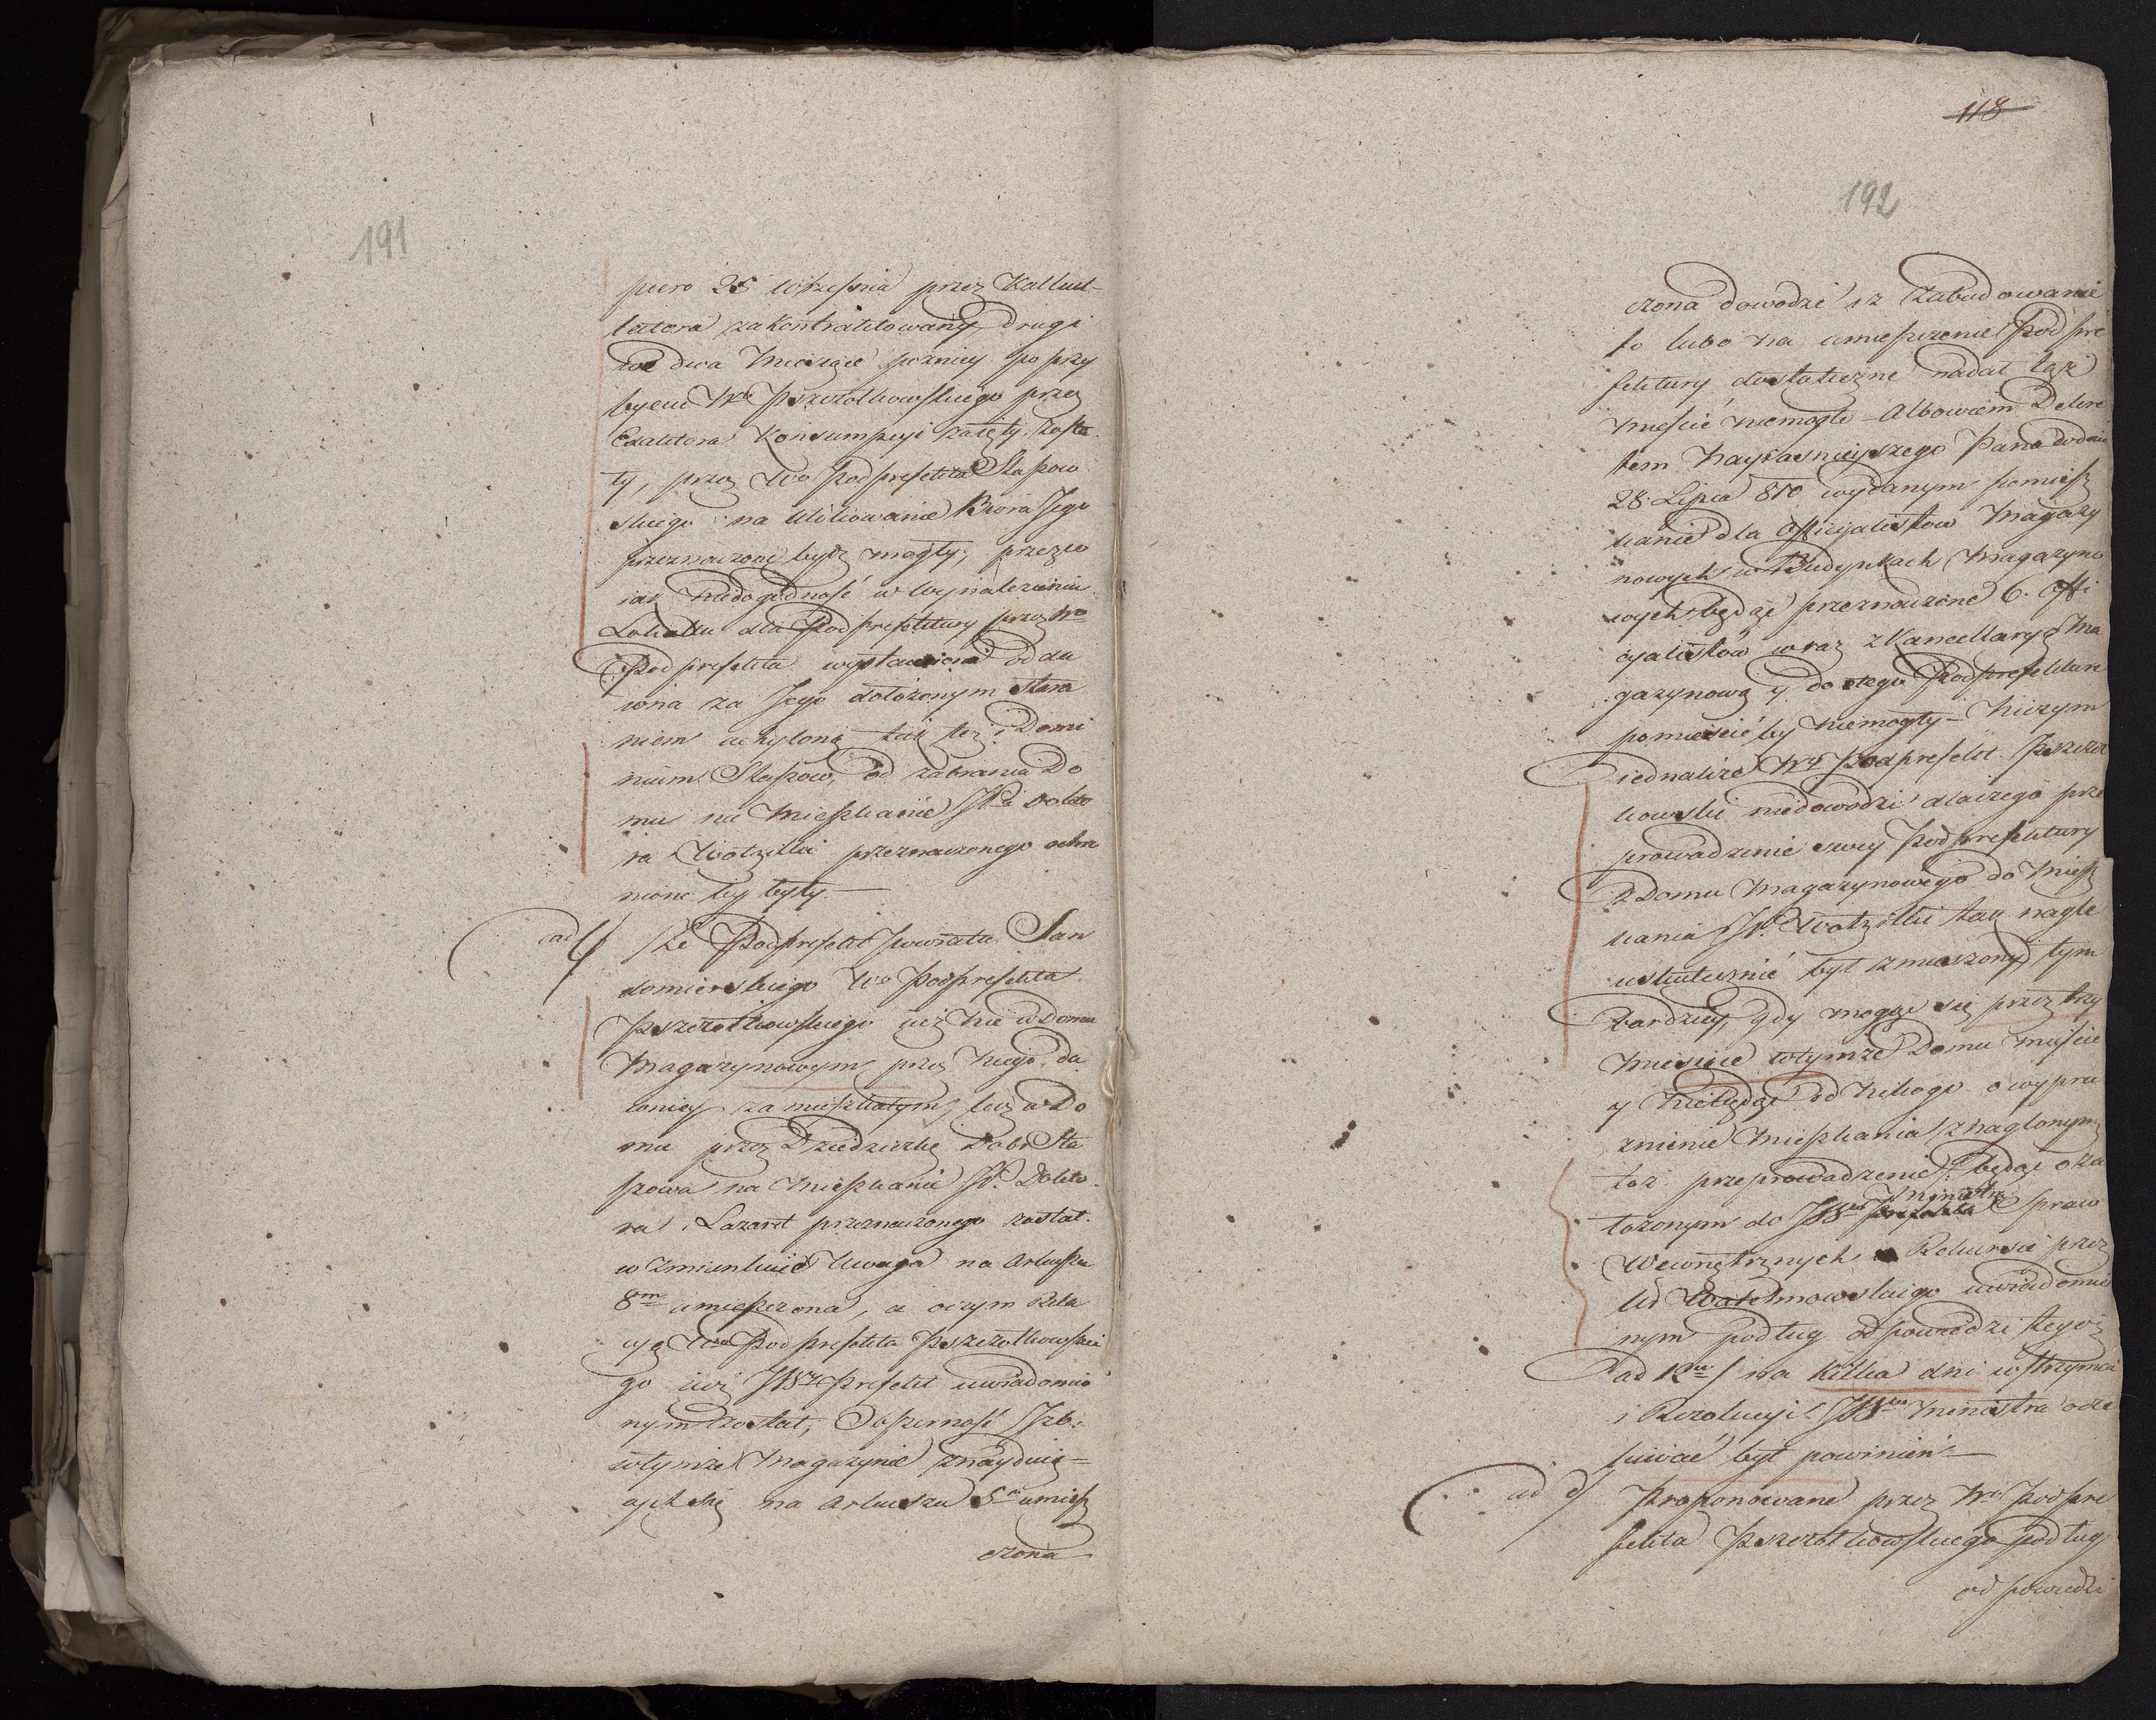 191
piero 25 Września przez Kalkul-
latora zakontraktowany, drugi
zaś dwa Miesiące pozniey po przy
byciu Wo Pszczołkowskiego przez
Exaktora Konsumpcyi zaięty zosta
ły, przez Wo Podprefekta Słupow
skiego na ulokowanie Biora Jego
przeznaczone bydź mogły; przezco
iak niedogodność w wynalezieniu
Lokalu dla Podprefektury przez Wo
Podprefekta wystawiona od da
wna za Jego dołożonym stara
niem uchyloną, tak też i Domi
nium Słupow, od zabrania Do
mu na Mieszkanie JP. Dokto
ra Wotzilki przeznaczonego ochra
nione by były —
ad 4/ Że Podprefekt Powiatu San
domierskiego Wo Podprefekta
Pszczołkowskiego iuż nie w Domu
Magazynowym przez niego da
wniey zamieszkałym, lecz w Do
mu przez Dziedziczkę Dobr Słu
powa na Mieszkanie JP. Dokto
ra Lazaret przeznaczonego zastał.
w Zmiankuie Uwaga na Arkuszu
8m umieszczona, a o czym Rela
cyą Wo Podprefekta Pszczołkowskie
go iuż JWy Prefekt uwiadomio
nym został, Obszerność Izb:
w tymże Magazynie znayduią=
cych się na Arkuszu 5m umiesz
czona
118
192
czona dowodzi iż Zabudowanie
to lubo na umieszczenie Podpre
fektury dostateczne nadal teże
mieścić niemogło – Albowiem Dekre
tem Nayiasnieyszego Pana dodnia
28. Lipca 810 wydanym pomiesz
kanie dla Officyalistow Magazy
nowych w Budynkach Magazyno
wych będąc przeznaczone 6. Offi
cyalistów wraz z Kancellaryą Ma
gazynową y do tego Podprefekturę
pomieścić by niemogły – Niczym
iednakże Wy Podprefekt Pszczoł
kowski niedowodzi dlaczego prze
prowadzenie swey Podprefektury
z Domu Magazynowego do Miesz
kania JP. Wotzilki tak nagle
uskutecznić był zmuszony, tym
bardziey gdy mogąc się przez trzy
Miesiące wtymże Domu mieście
y niebędąc od nikogo o wypru
znienie Mieszkania znaglonym
toż przeprowadzenie będąc o za
łożonym do JWo Ministra Spraw
Wewnętrznych Rekursie przez
uwiadomio
nym podług odpowiedzi tegoż
ad 12m/ na kilka dni wstrzymać
i Rezolucyi JWo Ministra ocze
kiwać był powinien —
ad 5/ Proponowane przez Wo Podpre
fekta Pszczołkowskiego podług
odpowiedzi